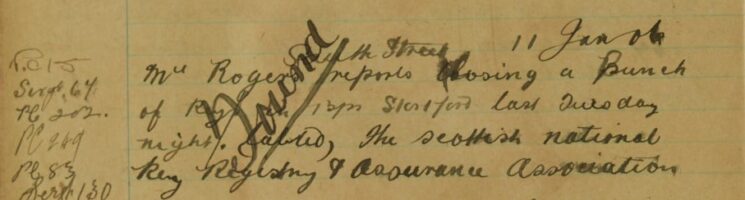 11 Jan 06
Mr Rogers South Street reports losing a Bunch
of Keys in Bps Stortford last Tuesday
night. Labled, The Scottish national
Key Registry & Assurance Association
Found
Sergt. 64
PC 202.
PC 249
PC 83
Sergt 130